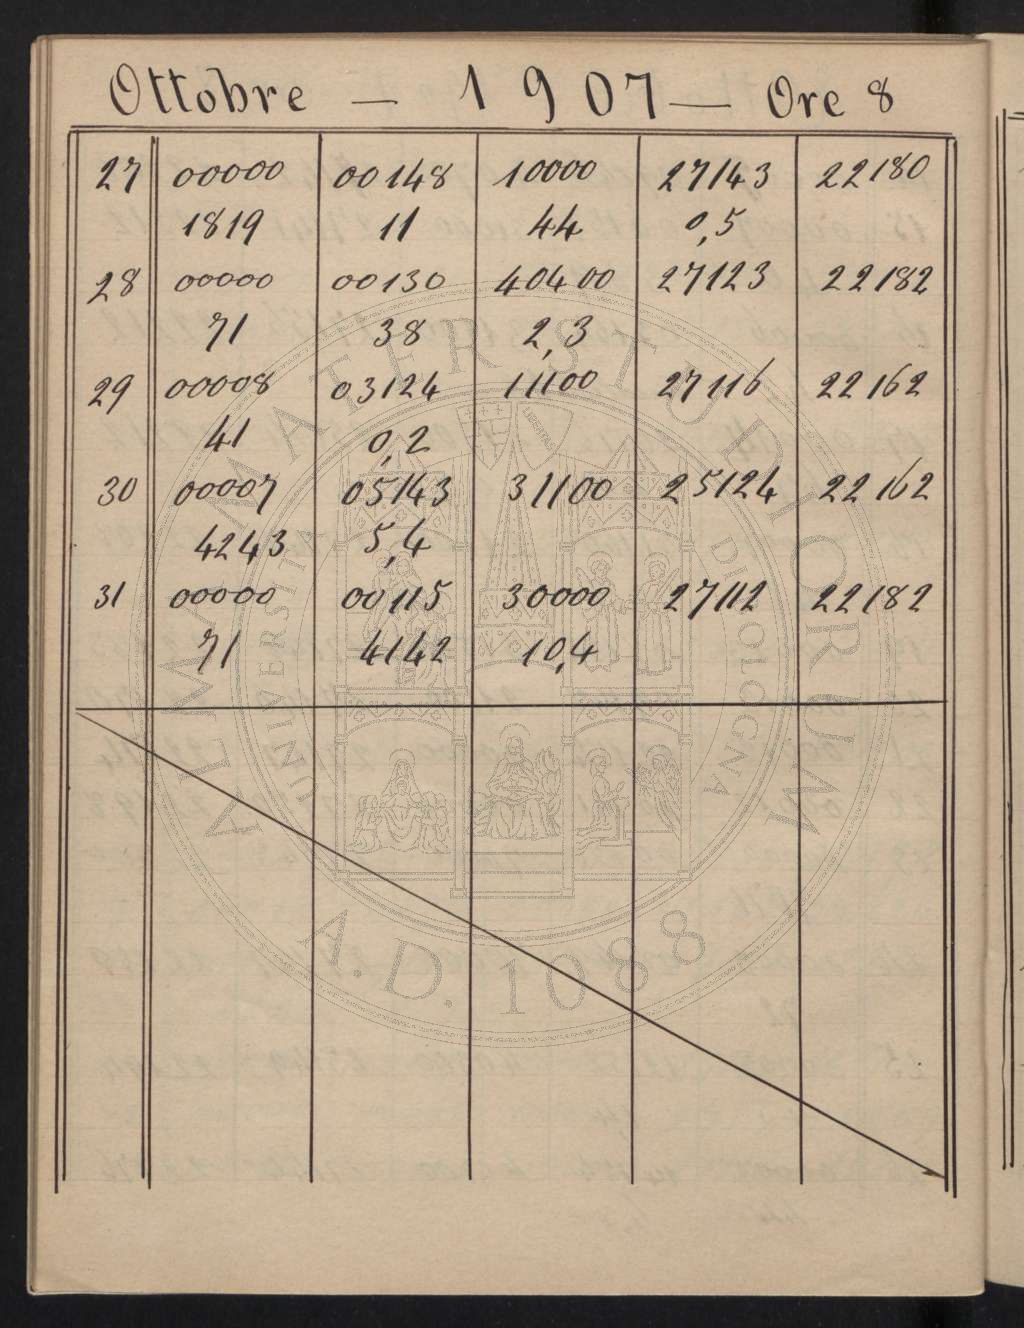 Ottobre — 1907 — Ore 8
27 00000 00148 10000 27143 22180
1819 11 44 0,5
28 00000 00130 40400 27123 22182
71 38 2,3
29 00008 03124 11100 27116 22162
41 0,2
30 00007 05143 31100 25124 22162
4243 5,4
31 00000 00115 30000 27112 22182
71 4142 10,4
ALMA MATER STUDIORUM
UNIVERSITÀ DI BOLOGNA
LIBERTAS
A.D. 1088